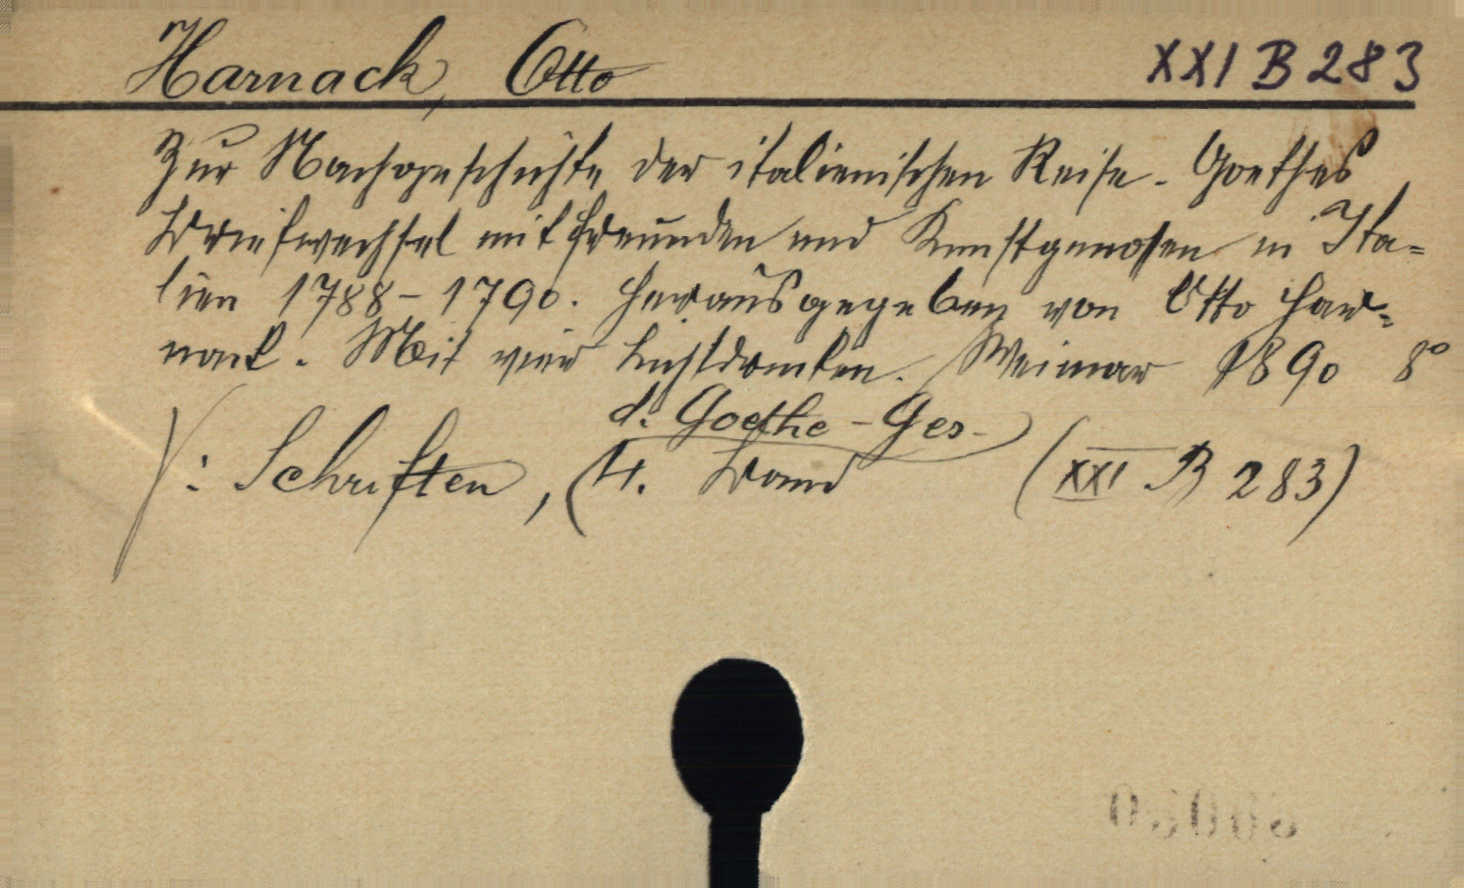 Harnack, Otto
XXI B 283
Zur Nachgeschichte der italienischen Reise. Goethes
Briefwechsel mit Freunden und Kunstgenossen in Ita=
lien 1788-1790. Herausgegeben von Otto Har=
nack. Mit vier Lichtdrucken. Weimar 1890 8°
V: Schriften, d. Goethe-Ges.
(5. Band (XXI B 283)